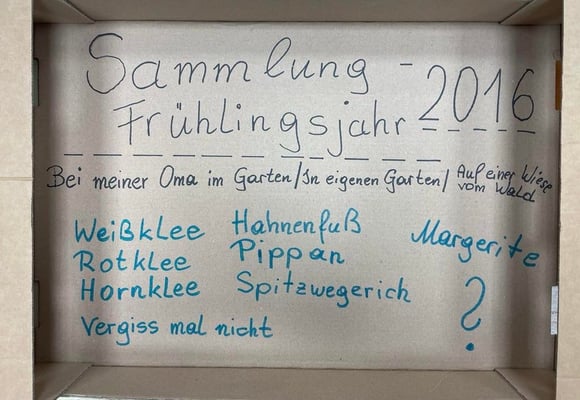 Sammlung - 2016
Frühlingsjahr
Bei meiner Oma im Garten/In eigenen Garten/ Auf einer Wiese vom Wald
Weißklee Hahnenfuß Margerite
Rotklee Pippan
Hornklee Spitzwegerich ?
Vergiss mal nicht